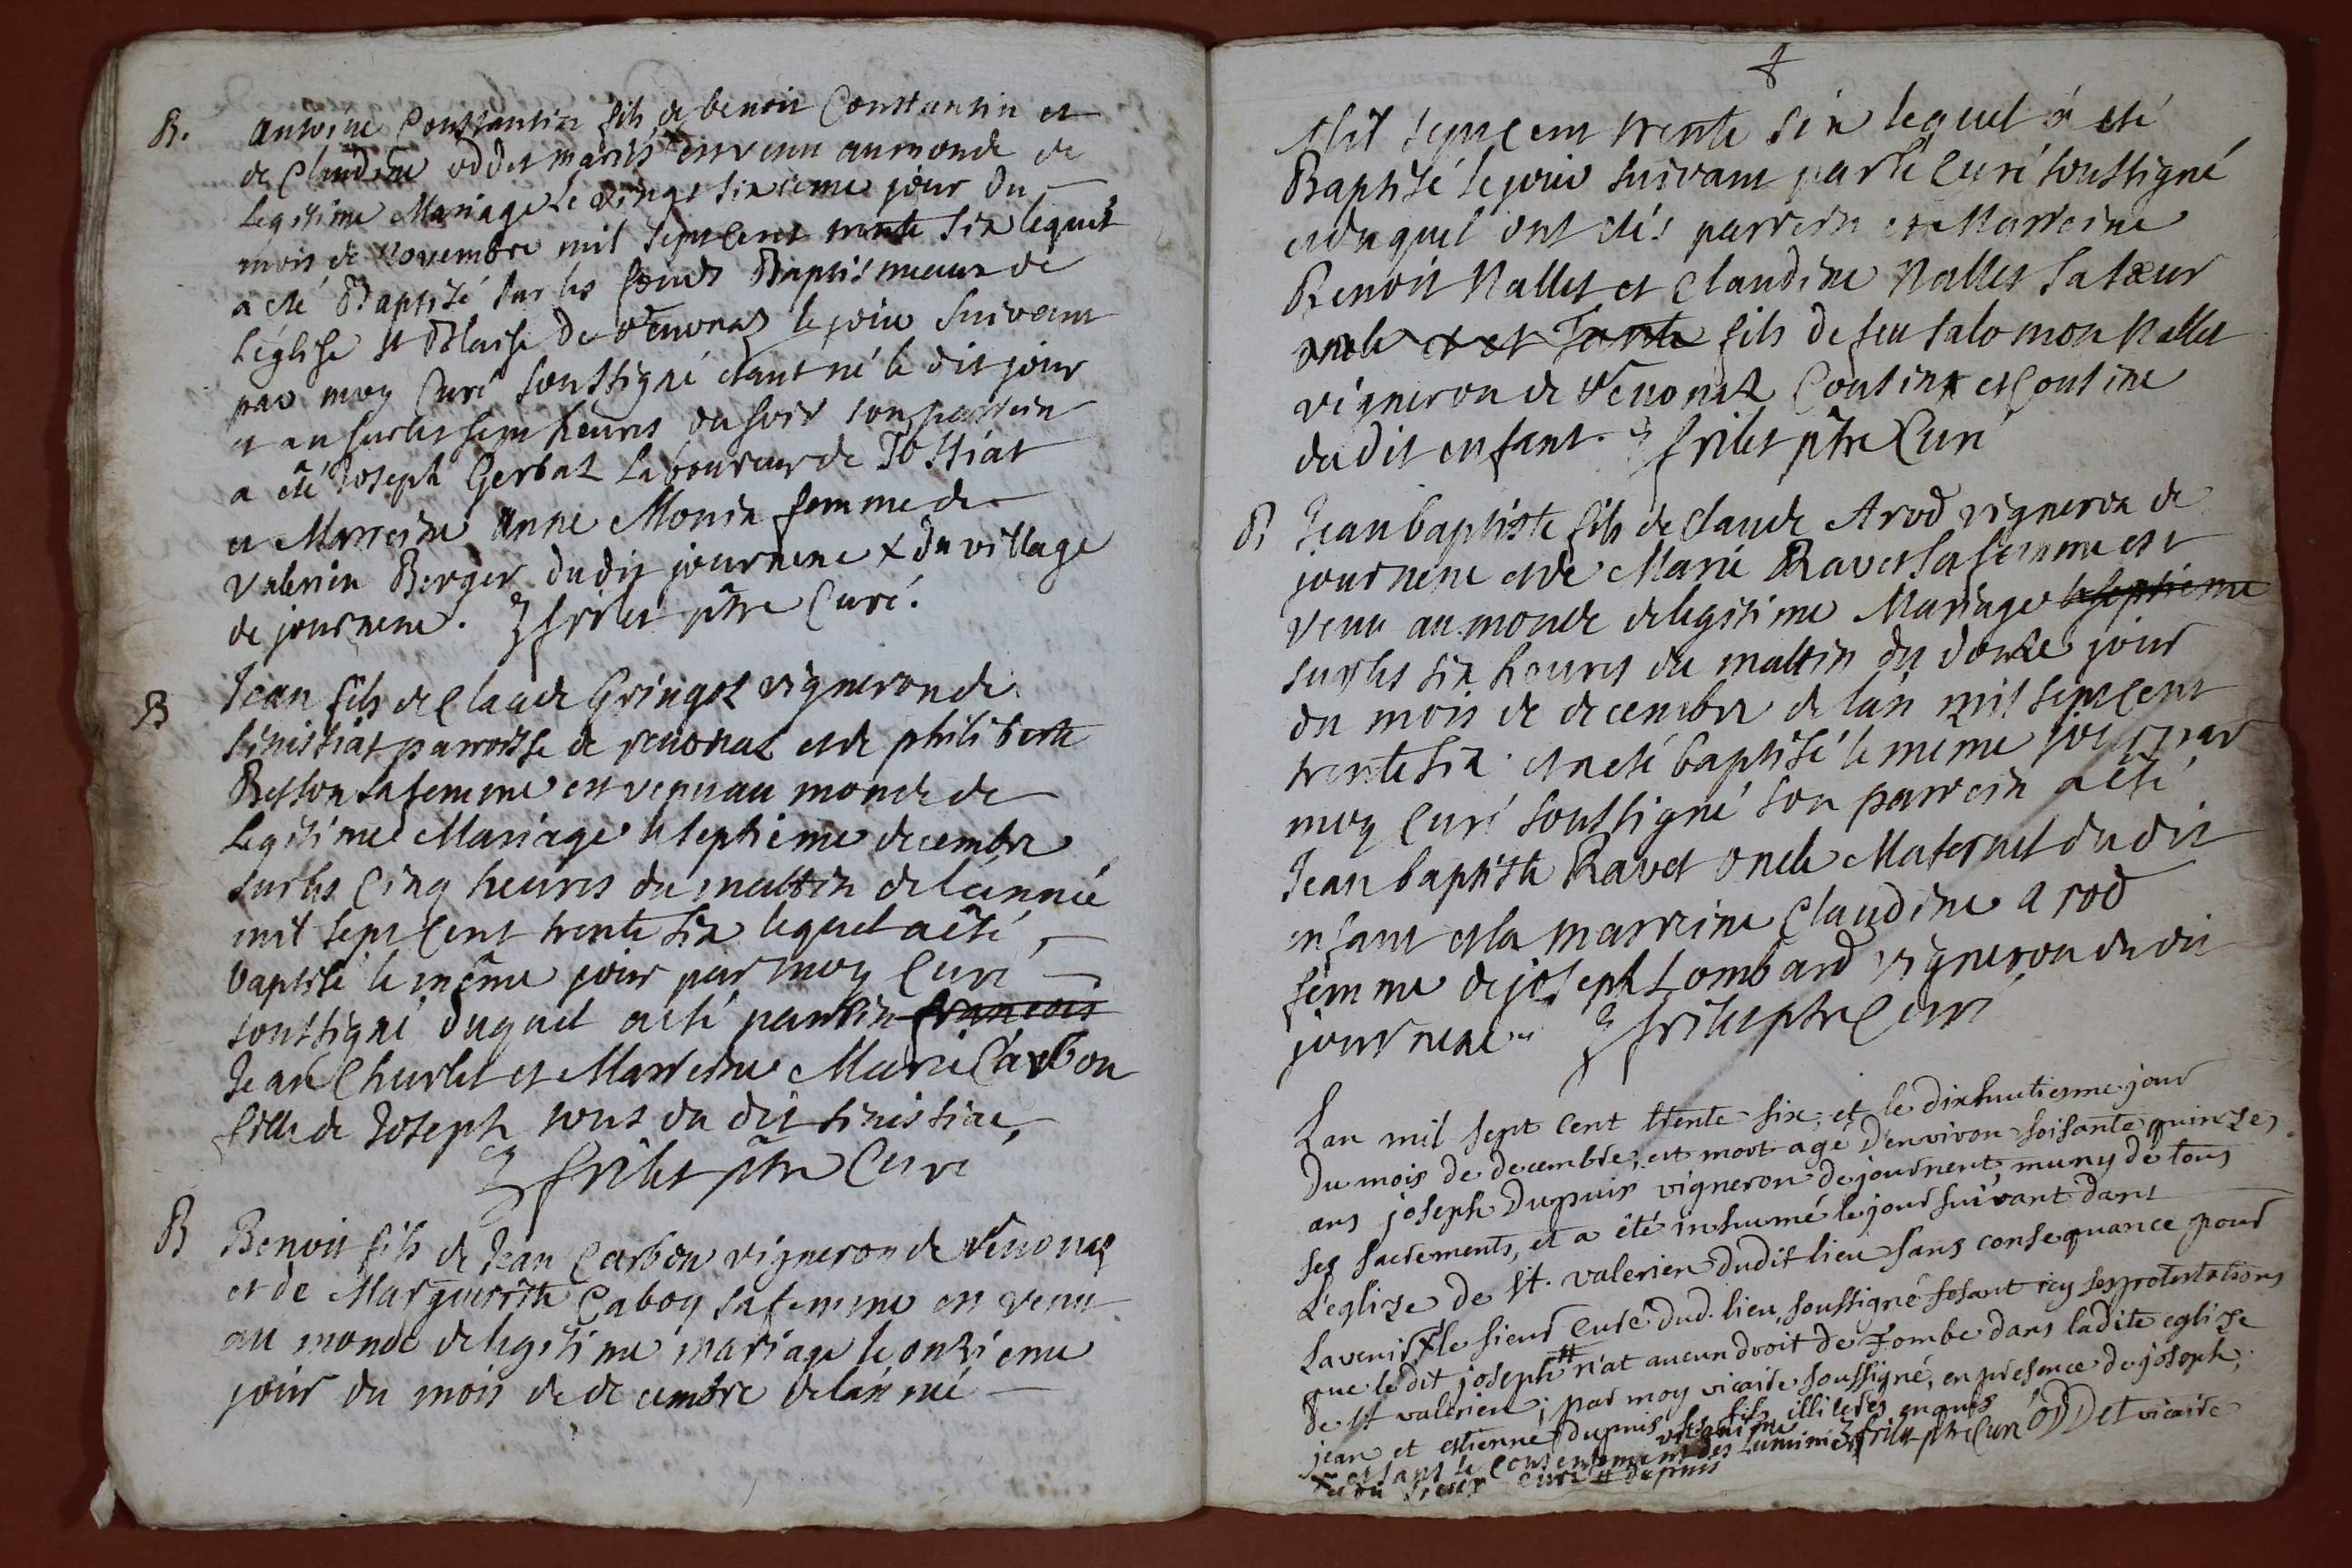 B. Antoine Constantin fils de benoit Constantin et
de Claudine oddet mariés est venu au monde de
Legitime Mariage le vingt sixieme jour du
mois de Novembre mil sept cent trente six lequel
a eté Baptisé sur les fonds Baptismeaux de
L'église St Blaise de Venonaz le jour suivant
par moy Curé soussigné etant né le dit jour
et an sur les sept heures du soir son parrein
a eté Joseph Gerbaz Laboureur de Tossiat
et Marreine Anne Monin femme de
Valerien Berger du dit journene x du village
de journene. J friles ptre Curé.
B Jean fils de Claude Gringoz vigneron de
sinissiat parroisse de renonaz et de philiberte
Besson sa femme est venu au monde de
Legitime Mariage le septieme decembre
sur les Cinq heures du mattin de lannée
mil sept Cent trente six lequel a eté
baptisé le même jour par moy Curé
soussigné duquel a eté parrein francois
Jean Churlet et Marreine Marie Carbon
fille de Joseph tous du dit sinissiat,
J friles ptre Curé
B Benoit fils de Jean Carbon vigneron de Venonaz
et de Margueritte Caboy sa femme est venu
au monde de legitime mariage le onzieme
jour du mois de decembre de lannée
Mil sept Cent trente six lequel à eté
Baptisé le jour suivant par le Curé soussigné
et duquel ont etés parrein et Marreine
Benoit Nallet et Claudine Nallet sa sœur
oncle et Tante fils de feu salomon Nallet
vigneron de Venonaz Cousin et Cousine
du dit enfant. J friles ptre Curé
B Jean baptiste fils de claude Arod vigneron de
journene et de Marie Ravet sa femme est
venu au monde de legitime Mariage le septieme
sur les six heures du mattin du douze jour
du mois de decembre de lan mil sept cent
trente six et a eté baptisé le même jour par
moy Curé soussigné son parrein a eté
Jean baptiste Ravet oncle Maternel du dit
enfant et la marreine Claudine Arod
femme de joseph Lombard vigneron du dit
journene J friles ptre Curé
Lan mil sept Cent trente six, et le dixhuitiesme jour
Du mois de decembre, est mort agé D'environ soisante quinze
ans joseph Dupuis vigneron de journent, muny de tous
ses sacrements, et a été inhumé le jour suivant dans
L'eglize de St. valerien dudit lieu sans consequance pour
Lavenir x le sieur Curé dud. lieu, soussigné fesant icy ses protestations
que le dit joseph # n'at aucun droit de Tombe dans ladite eglize
de St valerien; par moy vicaire soussigné, en presence de joseph,
jean et estienne dupuis ses fils illiterés enquis
x et sans le consentement des Luminiers J friles ptre Curé ODDet vicaire
et du sieur Curé # dupuis